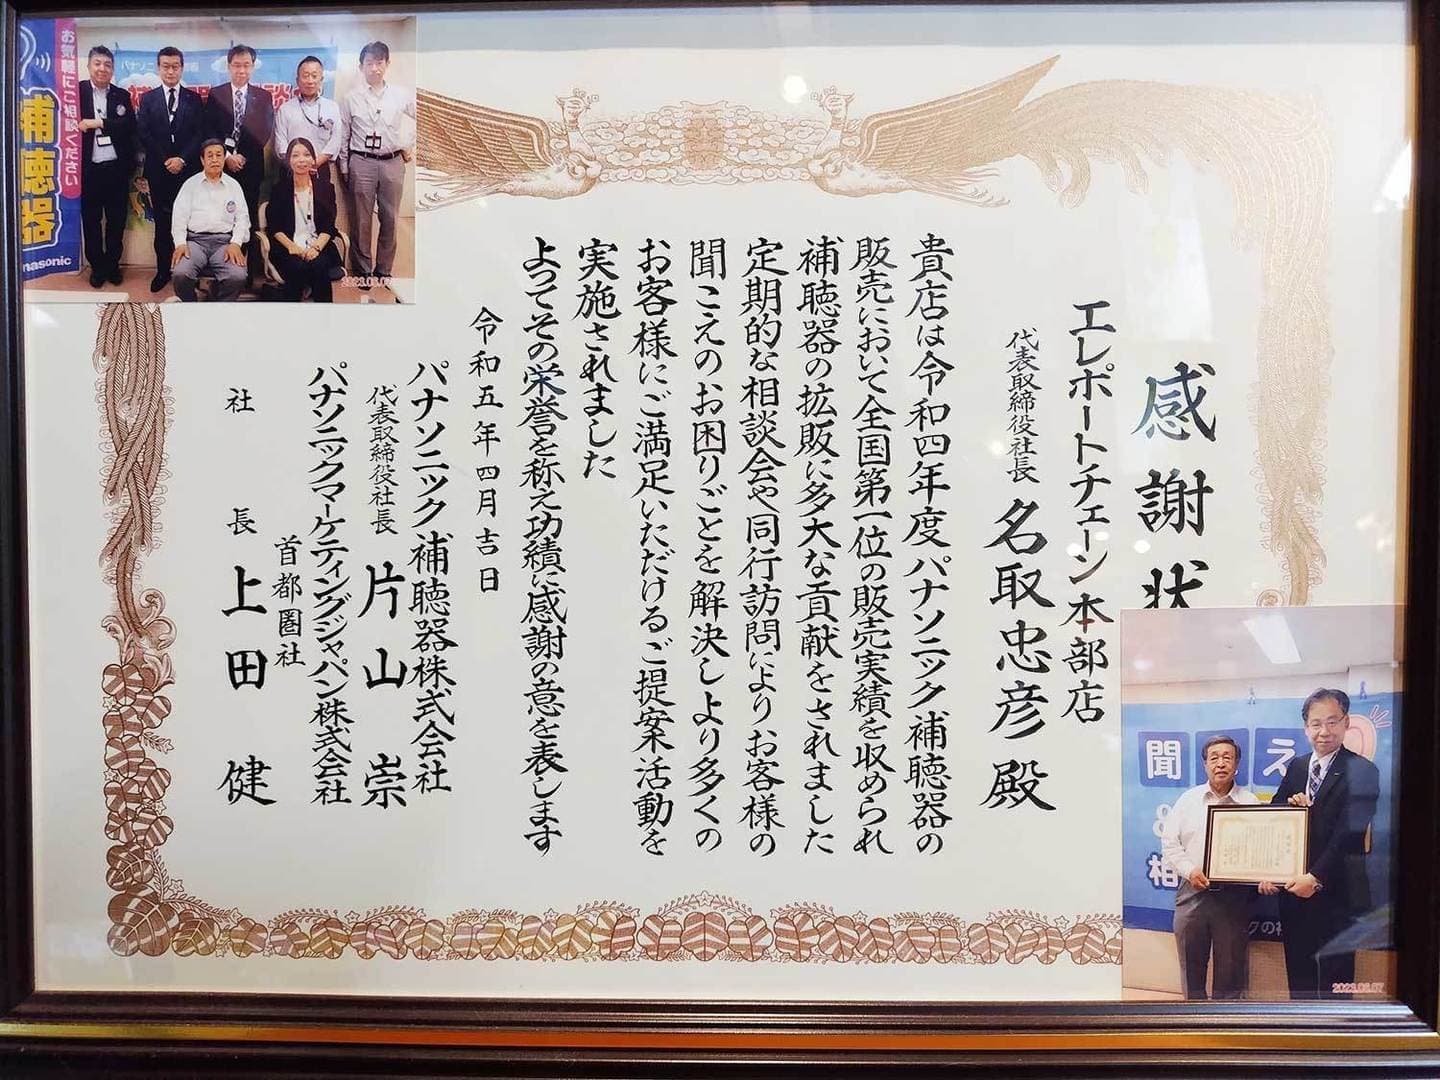 感謝状
エレポートチェーン本部店
代表取締役社長 名取忠彦殿
貴店は令和四年度パナソニック補聴器の
販売において全国第一位の販売実績を収められ
補聴器の拡販に多大な貢献をされました
定期的な相談会や同行訪問によりお客様の
聞こえのお困りごとを解決しより多くの
お客様にご満足いただけるご提案活動を
実施されました
よってその栄誉を称え功績に感謝の意を表します
令和五年四月吉日
パナソニック補聴器株式会社
代表取締役社長 片山崇
パナソニックマーケティングジャパン株式会社
首都圏社
社長 上田健
お気軽にご相談ください
補聴器
nasonic
パナソニ
談
聞 え
&
相
クの
2023.06.07